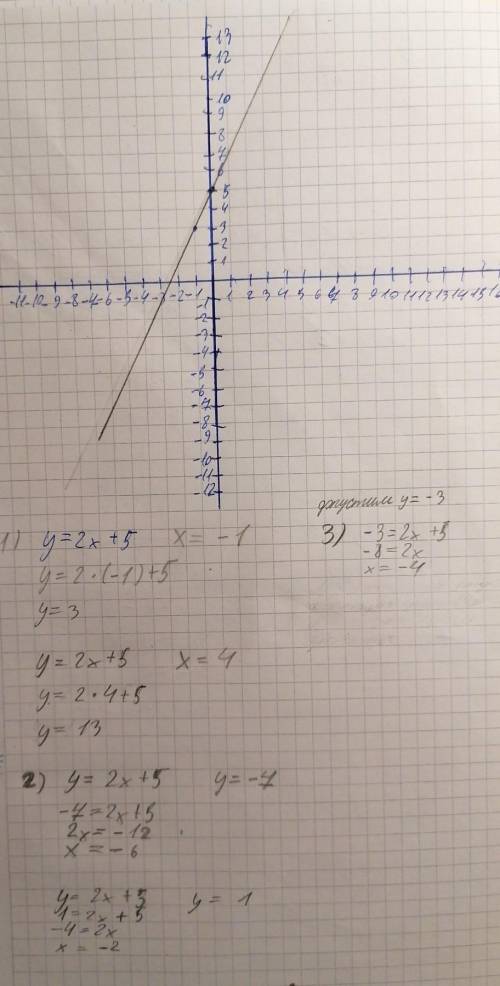 13
12
11
10
9
8
7
6
5
4
3
2
1
-11 -10 -9 -8 -7 -6 -5 -4 -3 -2 -1 1 2 3 4 5 6 7 8 9 10 11 12 13 14 15
-1
-2
-3
-4
-5
-6
-7
-8
-9
-10
-11
-12
1) y=2x+5 x=-1
y=2·(-1)+5
y=3
y=2x+5 x=4
y=2·4+5
y=13
2) y=2x+5 y=-7
-7=2x+5
2x=-12
x=-6
y=2x+5 y=1
1=2x+5
-4=2x
x=-2
y=-3
3) -3=2x+5
-8=2x
x=-4